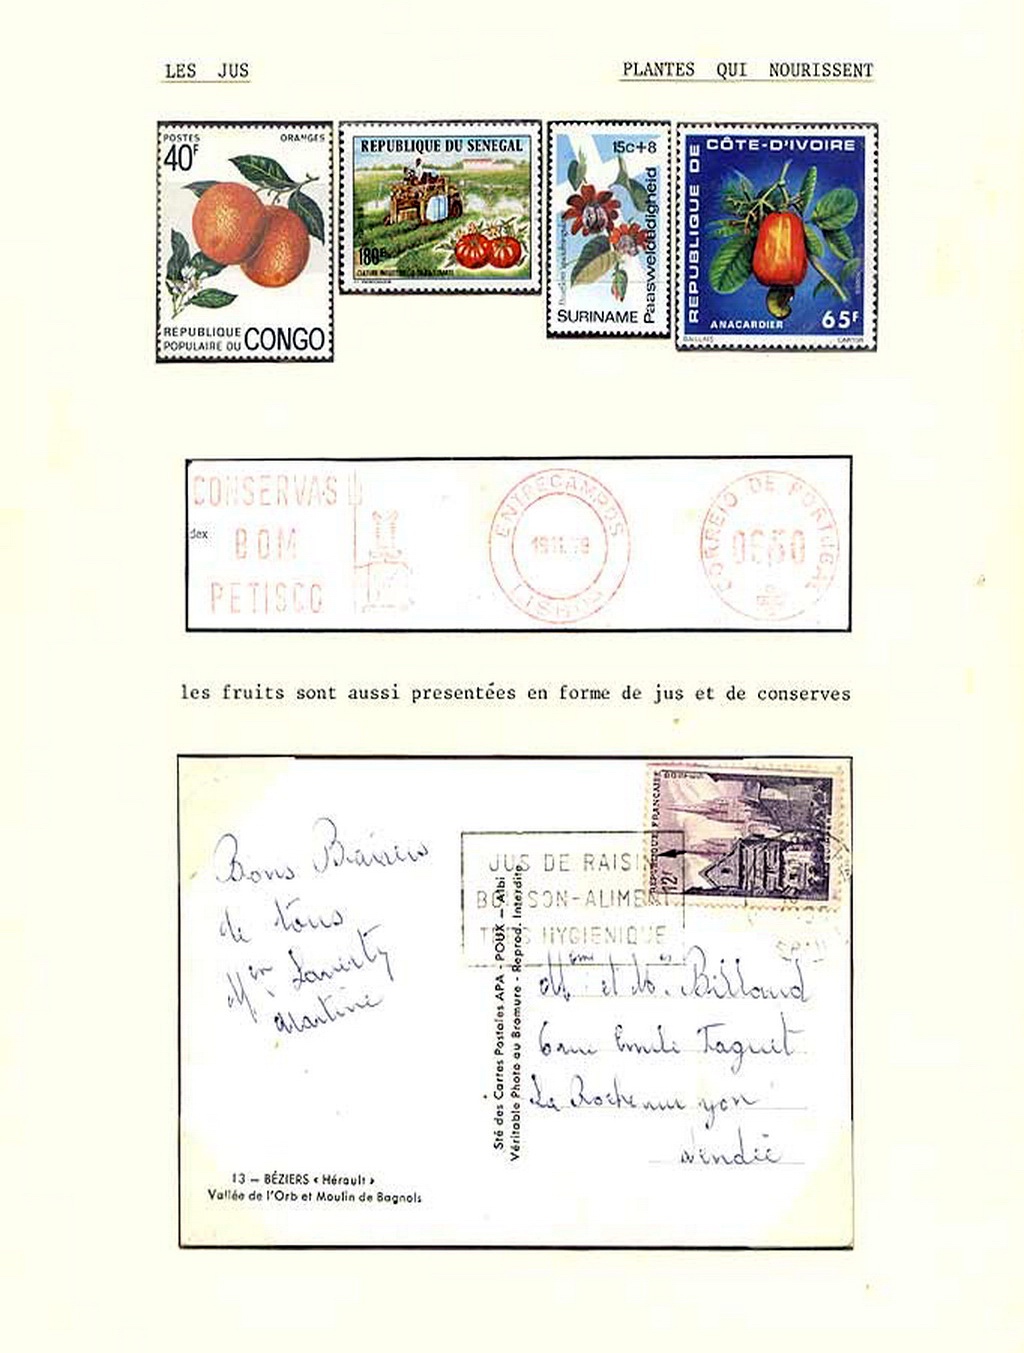 LES JUS
PLANTES QUI NOURISSENT
POSTES
ORANGES
40F
REPUBLIQUE
POPULAIRE DU CONGO
REPUBLIQUE DU SENEGAL
180F
15c+8
Paasweldadigheid
SURINAME
REPUBLIQUE DE
CÔTE-D'IVOIRE
ANACARDIER
65F
CONSERVAS
dex
BOM
PETISCO
ENTRECAMPOS
LISBOA
CORREIO DE PORTUGAL
les fruits sont aussi presentées en forme de jus et de conserves
REPUBLIQUE FRANÇAISE
12F
JUS DE RAISIN
BOISSON-ALIMENT
TRES HYGIENIQUE
Bons Baisers
de tous
Martine
Sté des Cartes Postales APA - POUX - Albi
Véritable Photo au Bromure - Reprod. Interdite
Mme et Mr Billaud
6 rue Emile Faguet
La Roche sur yon
Vendée
13 — BÉZIERS « Hérault »
Vallée de l'Orb et Moulin de Bagnols